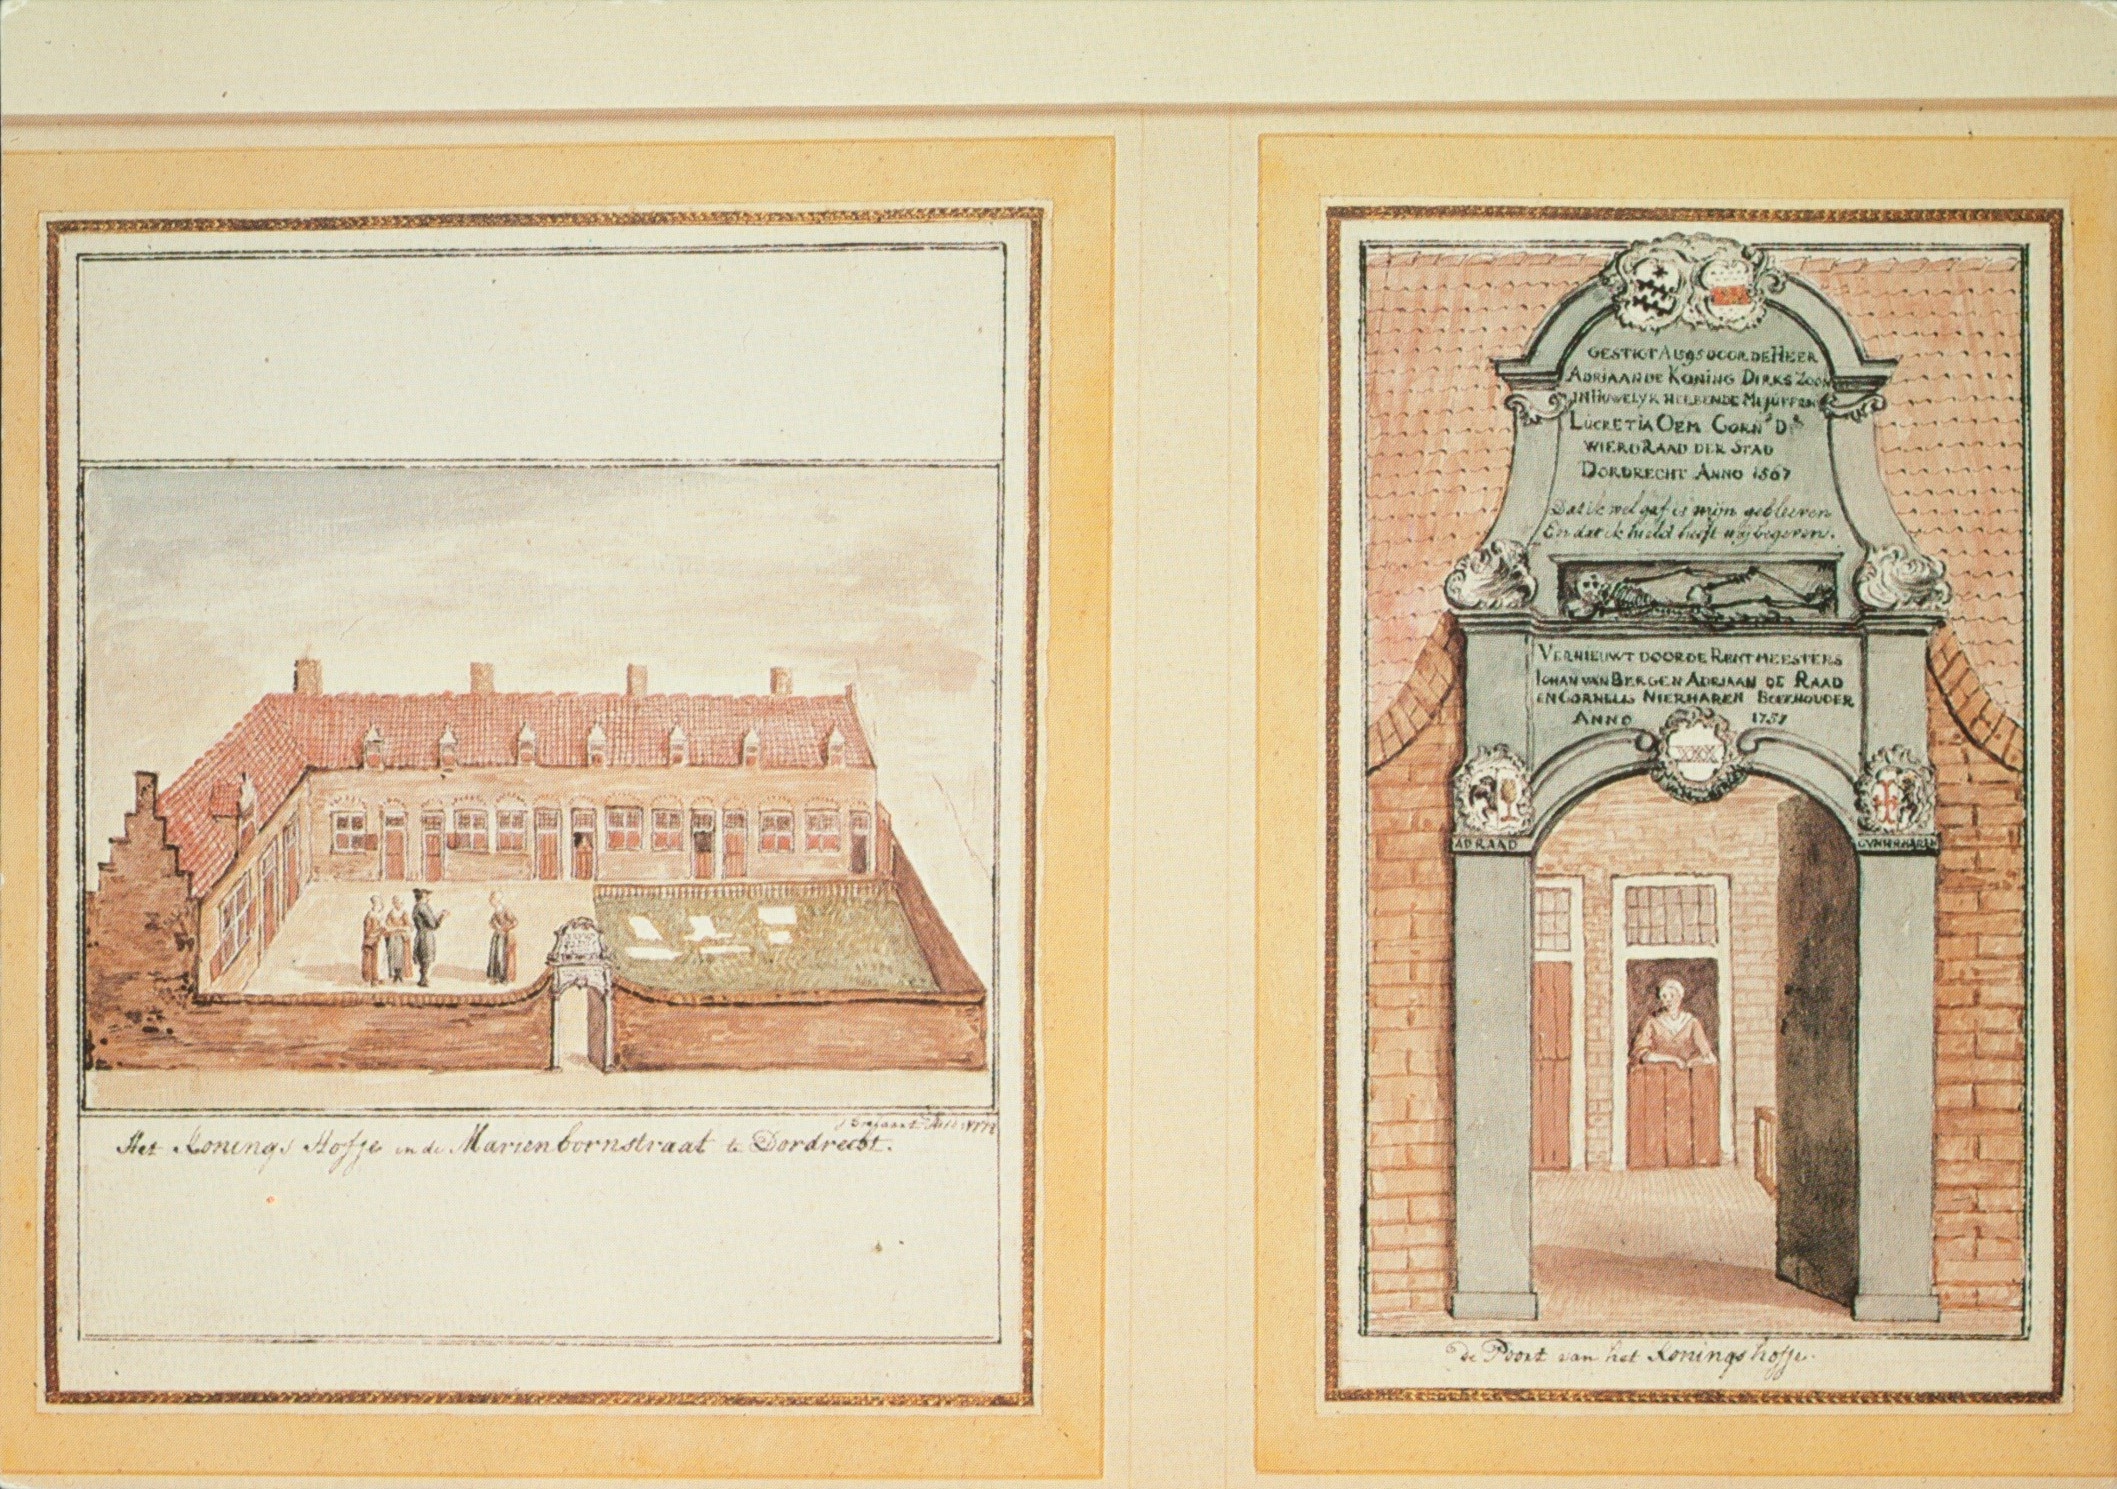 Het Konings Hofje in de Marienbornstraat te Dordrecht.
GESTIGT Aug DOOR DE HEER
ADRIAAN DE KONING DIRKS ZOON
IN HUWELYK HEBBENDE MEJUFFRW
LUCRETIA OEM CORNs Dr
WIERD RAAD DER STAD
DORDRECHT ANNO 1567
Dat ik wel gaf is mijn gebleeven
En dat ik hield heeft mij begeven.
VERNIEUWT DOOR DE RENTMEESTERS
IOHAN VAN BERGEN ADRIAAN DE RAAD
EN CORNELIS NIERHAREN BOEKHOUDER
ANNO 1757
AD RAAD
De Poort van het Konings hofje.